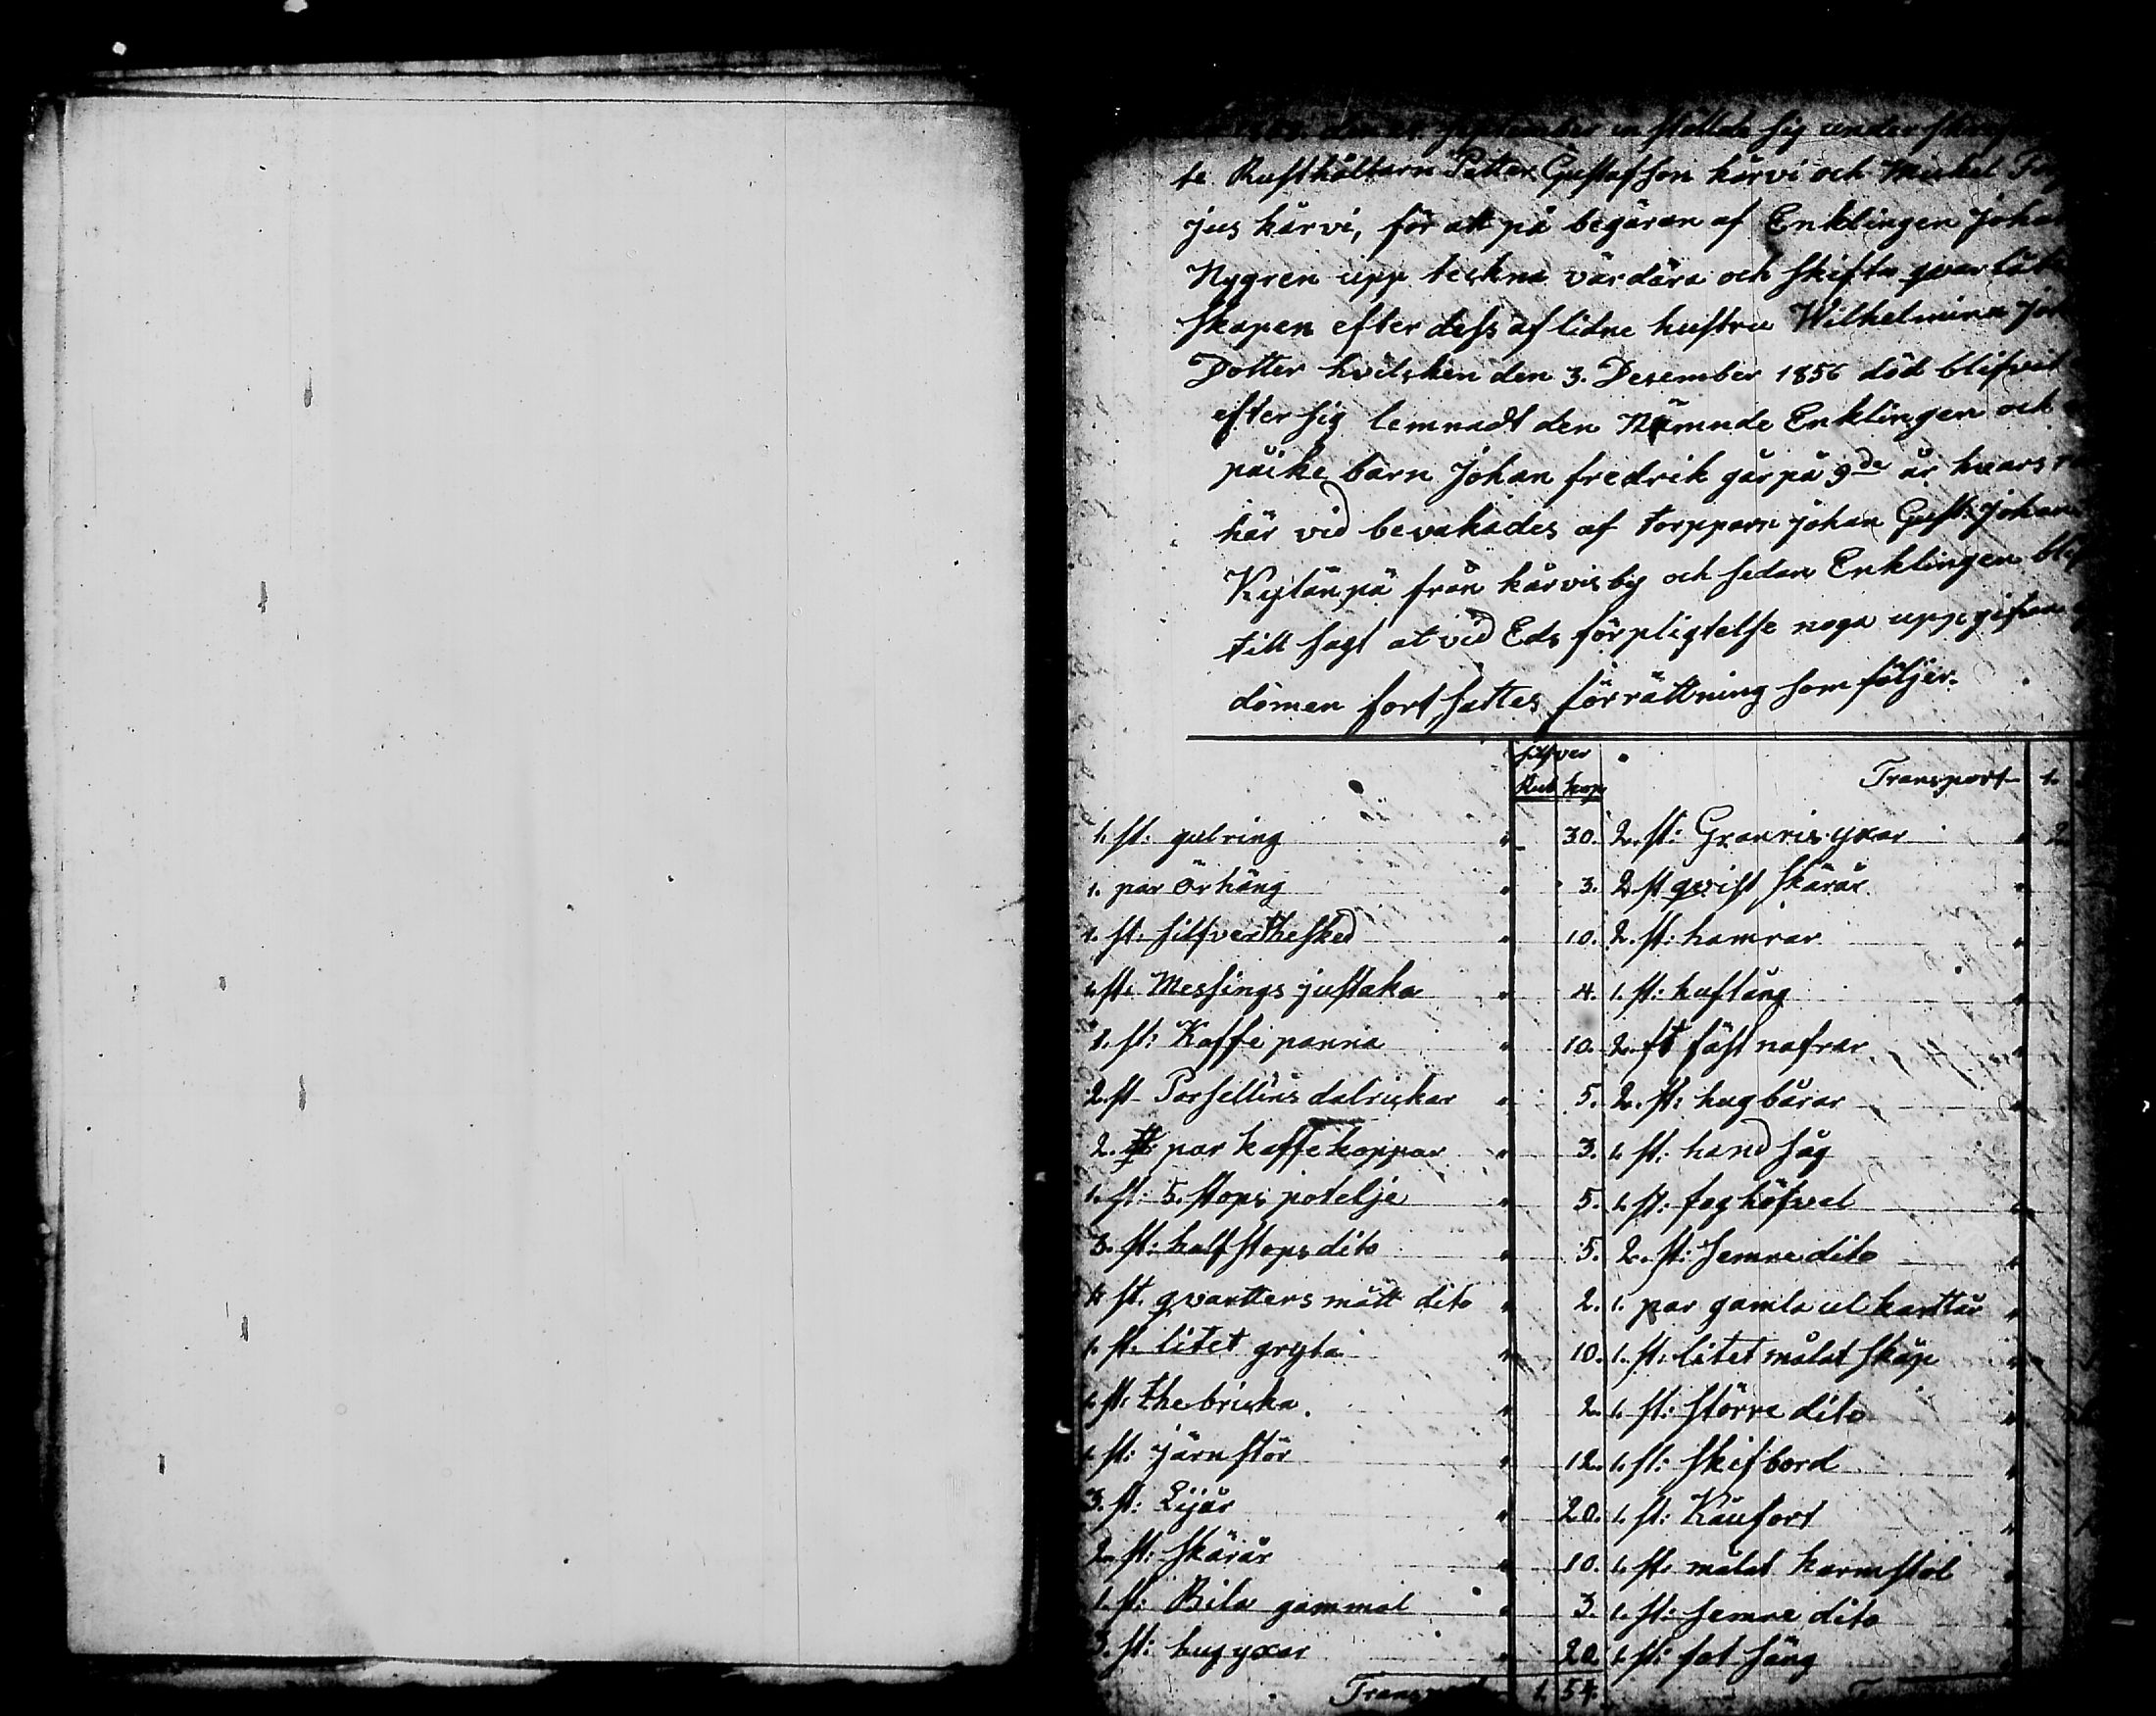 den September in stältade sig under
te Rusthåltarn Petter Gustafsson kårvi och Mickel
jus kårvi, för att på begäran af Enklingen Johan
Nygren upp teckna värdära och skifta qvarlåten
skapen efter dess aflidne hustru Wilhelmina
Dotter hvilcken den 3. Desember 1856 död blifvit
efter sig lemnadt den Nämnde Enklingen och
påike barn Johan fredrik går på 9de år hvars
här vid bevakades af torpparn Johan Gust: Johans
Kylänpä från kårvis by och sedan Enklingen
till sagt at vid Eds förpligtelse noga uppgifva
domen fort sattes förrättning som följer.
silfver
Rub kop
Transport 1.
1. st: gulring " 30.
1. par Örhäng " 3.
1. st. silfver thesked " 10.
st: Messings justaka " 4.
1. st: Kaffi panna " 10.
2. st Porsellins dalrickar " 5.
2. par kaffe koppar " 3.
1. st: 5. stops potelje " 5.
3. st: half stops dito " 5.
4 st. qvartters mått dito " 2.
1. st. litet gryta " 10.
1. st: the bricka " 2.
1. st: järn stör " 12.
3. st: Lijär " 20.
2. st: skärär " 10.
1. st: Bila gammal " 3.
3. st: hugyxar " 20
Transport 1. 54.
2. st: Granris yxar " 2
2 st qvist skärär "
2. st: hamrar "
1. st: huftång "
2. st fäst nafrar "
2. st: hugbårar "
1. st: hand såg
1. st: foghöfvel "
2. st: semre dito "
1. par gamla ul karttår "
1. st: litet målat skåp "
1. st: större dito "
1. st: skifbord "
1. st: Käufort "
1. st: målat karmstol "
1. st: semre dito "
1. st: fot säng "